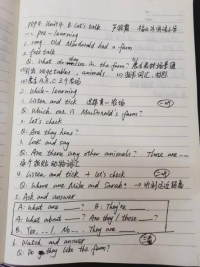 PEP4 Unit4 B Let's talk
一. pre-learning
1. song. Old Macdonald had a farm
2. free talk
Q: What do in the farm?
vegetables, animals
二. While-learning
1. Listen and tick 选择第一农场
Q: Which one is MacDonald's farm?
2. Let's check
Q: Are they hens?
3. look and say
Q: Are there any other animals? Those are --
4. Listen and tick + let's check
Q: Where are Mike and Sarah? →
5. Ask and answer
A: What are ___? B: They're ___
A: What about ___? Are they / those ___?
B: Yes, __/ No __. They are ___
6. Watch and answer
Q: Do they like the farm?